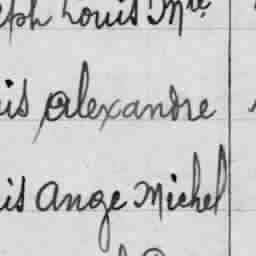 eph Louis Mre
is Alexandre
is Ange Michel